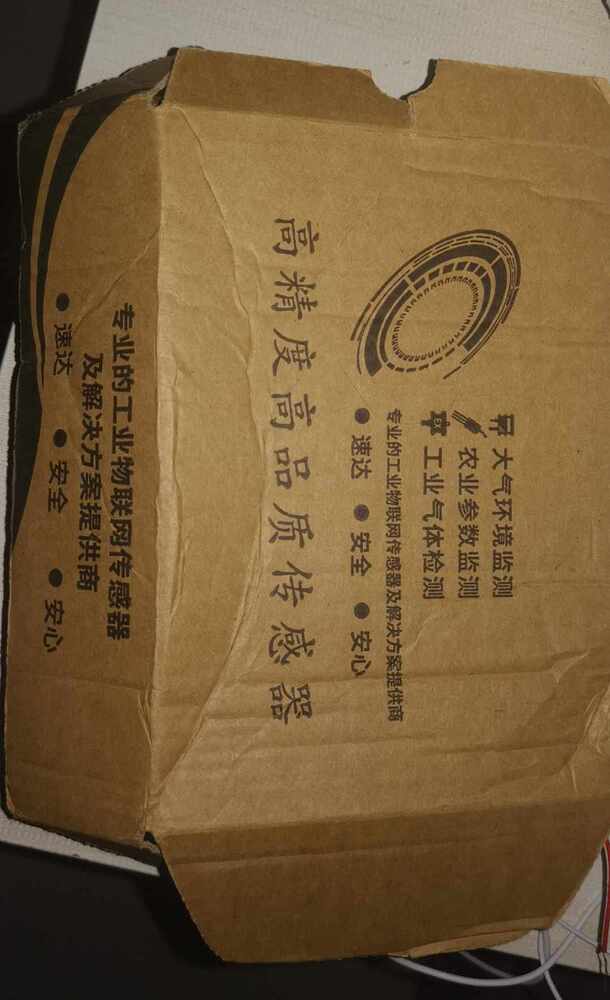 大气环境监测
农业参数监测
工业气体检测
专业的工业物联网传感器及解决方案提供商
● 速达 ● 安全 ● 安心
高精度高品质传感器
专业的工业物联网传感器
及解决方案提供商
● 速达 ● 安全 ● 安心